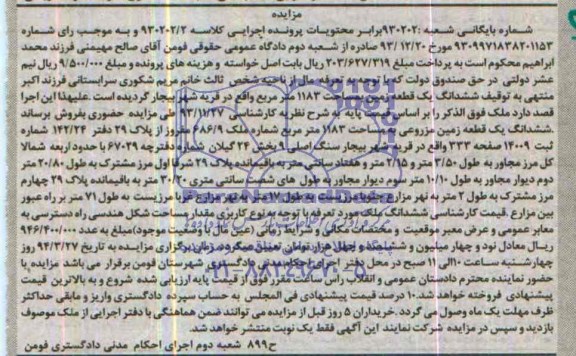 مزایده
شماره بایگانی شعبه :۹۳۰۲۰۲برابر محتویات پرونده اجرایی کلاسه ۹۳۰۲۰۲/۲ و به موجب رای شماره
۹۳۰۹۹۷۱۸۳۸۲۰۱۱۵۳ مورخ ۹۳/۱۲/۲۰ صادره از شعبه دوم دادگاه عمومی حقوقی فومن آقای صالح مهیمنی فرزند محمد
ابراهیم محکوم است به پرداخت مبلغ ۲۰۳/۶۲۷/۳۱۹ ریال بابت اصل خواسته و هزینه های پرونده و مبلغ ۹/۵۰۰/۰۰۰ ریال نیم
عشر دولتی در حق صندوق دولت که با توجه به تعرفه مال از ناحیه شخص ثالث خانم مریم شکوری سرابستانی فرزند اکبر
منتهی به توقیف ششدانگ یک قطعه زمین به مساحت ۱۱۸۳ متر مربع واقع در قریه شهر بیجار گردیده است .علیهذا این اجرا
قصد دارد ملک فوق الذکر را بر اساس قیمت پایه به شرح نظریه کارشناسی ۹۳/۱۱/۲۷ طی مزایده حضوری بفروش برساند
.ششدانگ یک قطعه زمین مزروعی به مساحت ۱۱۸۳ متر مربع شماره ملک ۶۸۶/۹ مفروز از پلاک ۲۹ دفتر ۱۴۲/۲۴ شماره
ثبت ۱۴۰۰۹ صفحه ۳۳۳ واقع در قریه شهر بیجار سنگ اصلی ۹ بخش ۲۴ گیلان شماره دفترچه ۶۷۰۲۹ با حدود اربعه شمالا
کل مرز مجاور به طول ۳/۵۰ متر و ۲/۱۵ متر و هفتاد سانتی متر به باقیمانده پلاک ۲۹ شرقا اول مرز مشترک به طول ۲۰/۸۰ متر
دوم دیوار مجاور به طول ۱۰/۱۰ متر سوم دیوار مجاور به طول های شصت سانتی متری ۳۰/۲۰ متر به باقیمانده پلاک ۲۹ چهارم
مرز مشترک به طول ۲ متر به نهر مزارع جنوبا مرزیست به طول ۱۷ متر به نهر مزارع غربا مرزیست به طول ۷۱ متر بر راه عبور
بین مزارع .قیمت کارشناسی ششدانگ ملک مورد تعرفه با توجه به نوع کاربری مقدار مساحت شکل هندسی راه دسترسی به
معابر عمومی و عرض معبر موقعیت و مختصات مکانی و شرایط زمانی (عین مال با وضعیت موجود)مبلغ به عدد ۹۴۶/۴۰۰/۰۰۰
ریال معادل نود و چهار میلیون و ششصد و چهل هزار تومان تعیین میگردد.زمان برگزاری مزایده به تاریخ ۹۴/۳/۲۷ روز
چهارشنبه ساعت ۱۰الی ۱۱ صبح در محل دفتر اجرای احکام مدنی دادگستری شهرستان فومن برقرار می باشد مزایده با
حضور نماینده محترم دادستان عمومی و انقلاب راس ساعت مقرر فوق از قیمت پایه ارزیابی شده شروع و به بالاترین قیمت
پیشنهادی فروخته خواهد شد.۱۰ درصد قیمت پیشنهادی فی المجلس به حساب سپرده دادگستری واریز و مابقی حداکثر
ظرف مهلت یک ماه وصول می گردد .خریداران ۵ روز قبل از مزایده می توانند ضمن هماهنگی با دفتر اجرایی از ملک موصوف
بازدید و سپس در مزایده شرکت نمایند این آگهی فقط یک نوبت منتشر خواهد شد.
ح۸۹۹ شعبه دوم اجرای احکام مدنی دادگستری فومن